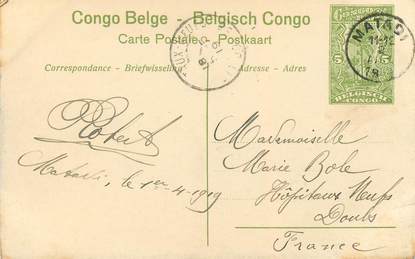 Congo Belge - Belgisch Congo
Carte Postale - Postkaart
Correspondance - Briefwisseling
Adresse - Adres
CONGO
5 5
BELGISCH CONGO
MATADI
Robert
Matadi, le 1er 4-1919
Mademoiselle
Marie Bole
Hôpitaux Neufs
Doubs
France